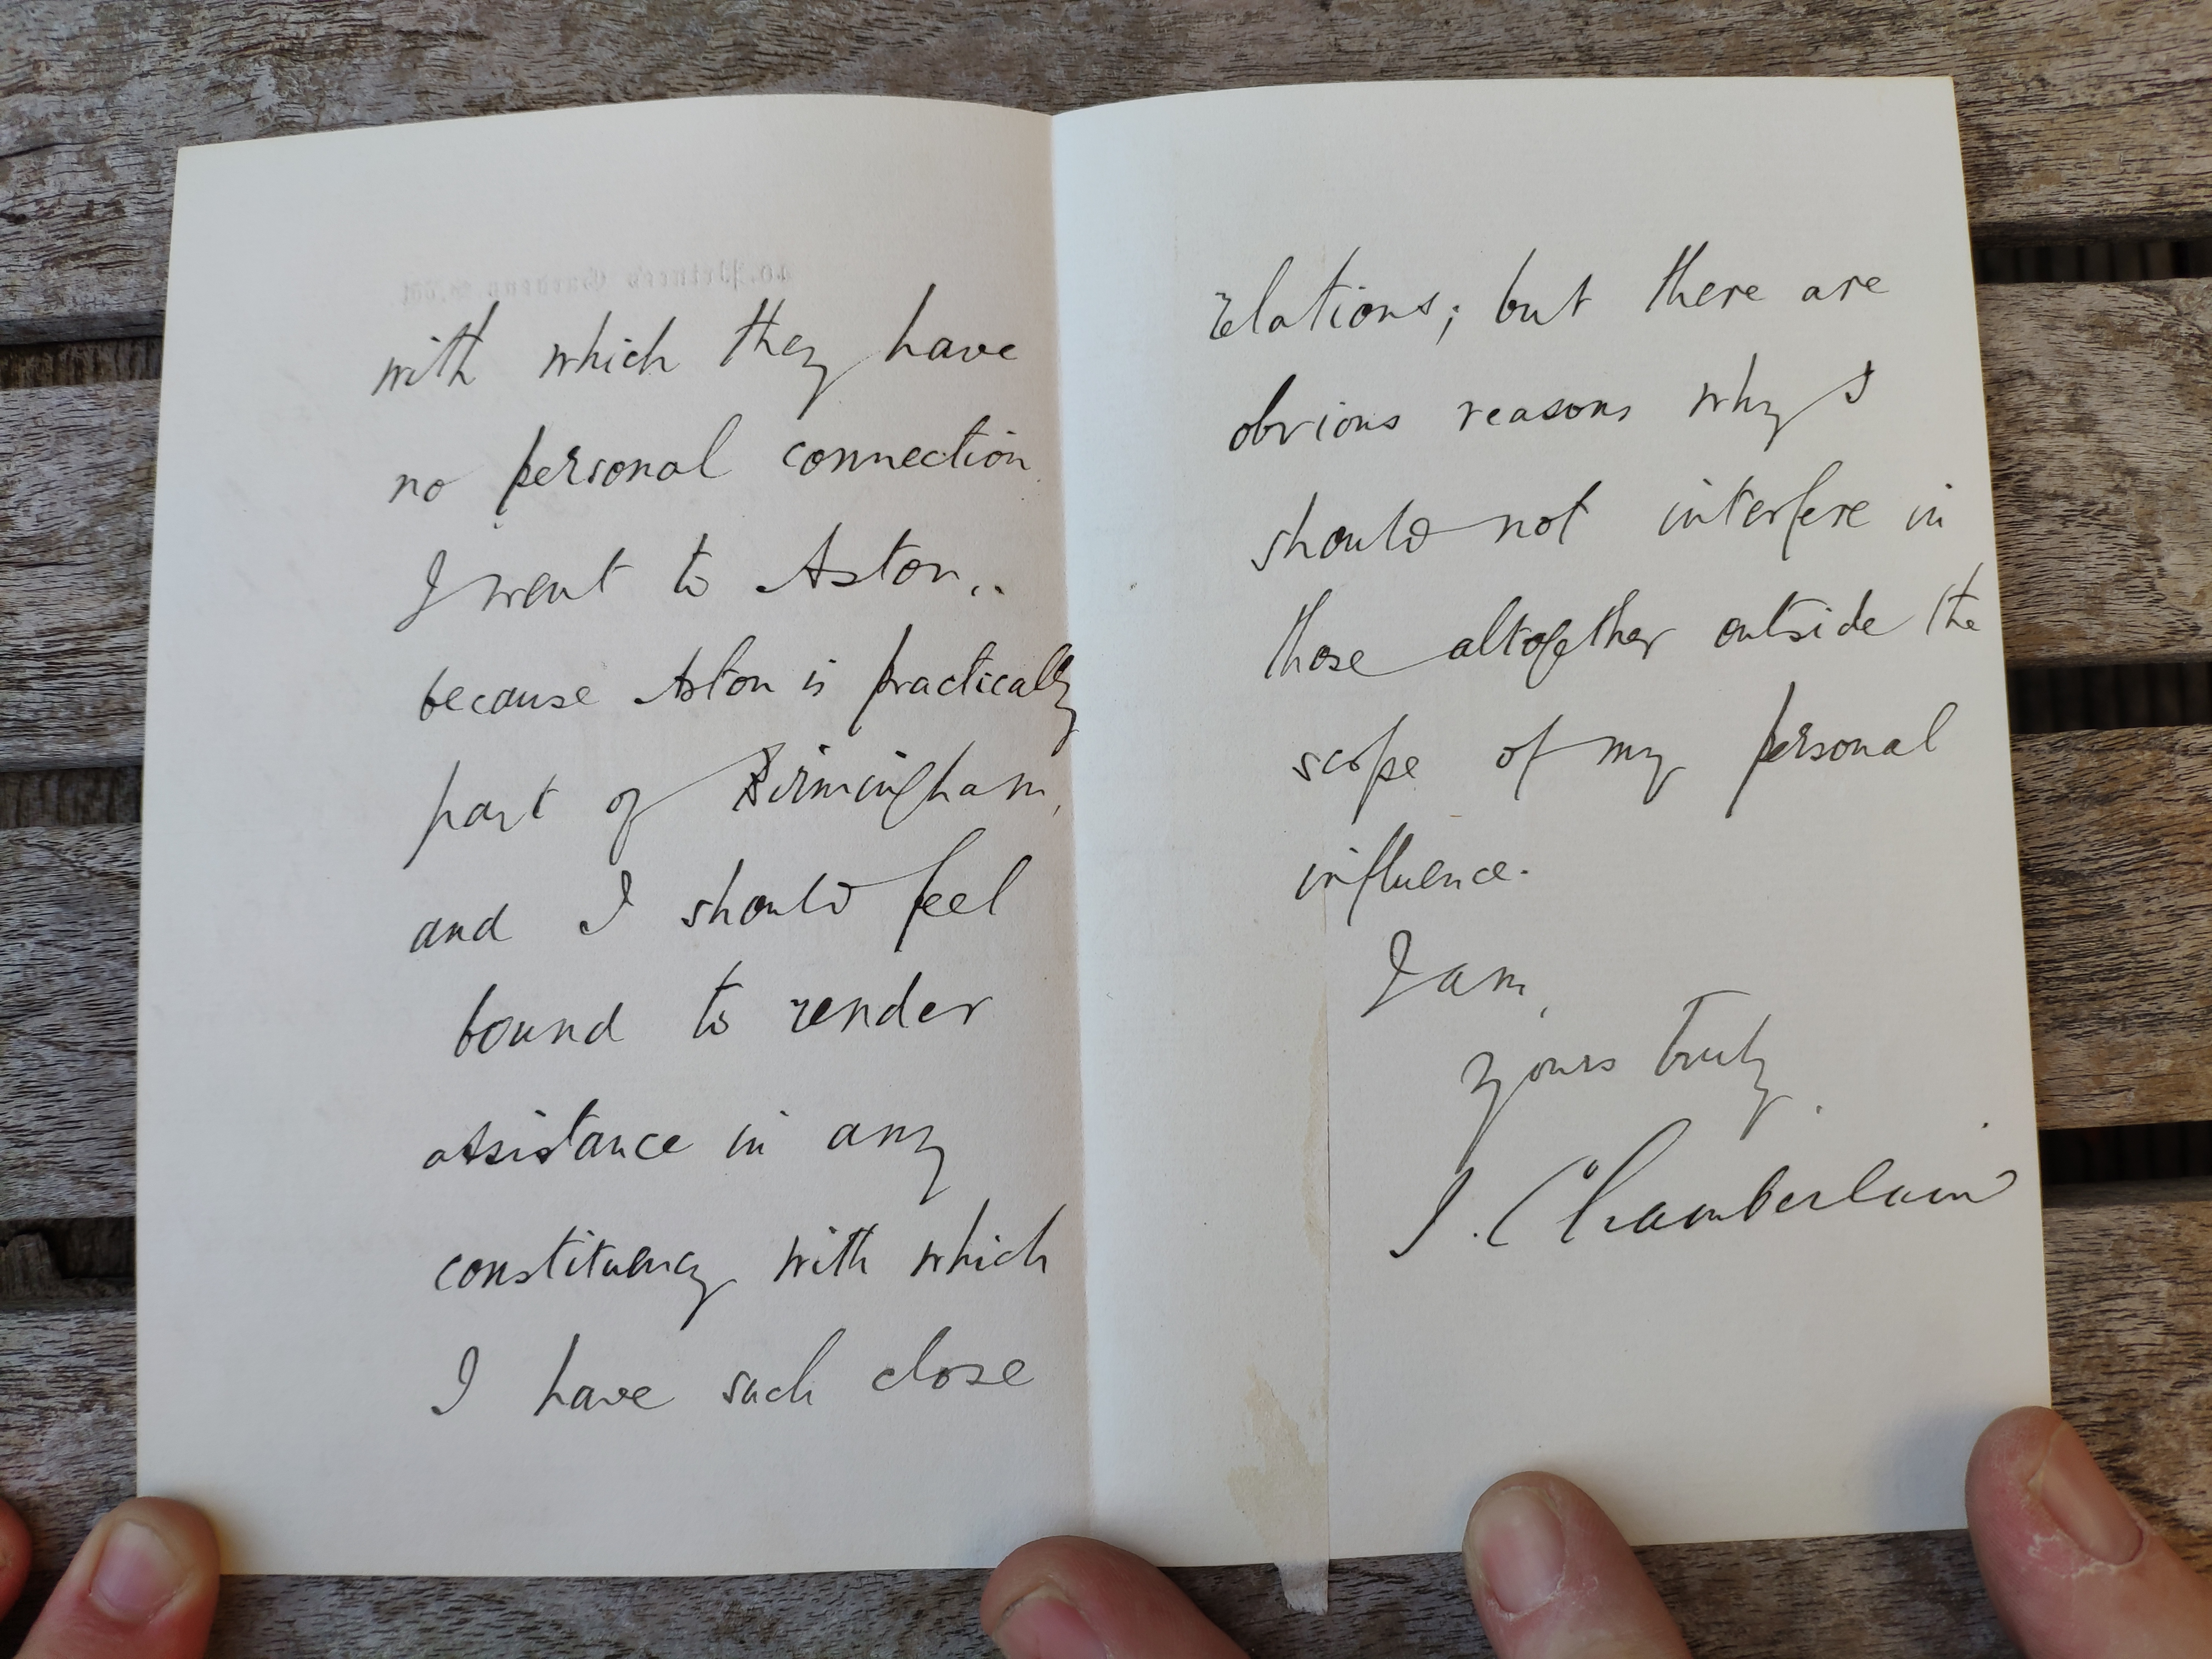 with which they have
no personal connection.
I went to Aston..
because Aston is practically
part of Birmingham,
and I should feel
bound to render
assistance in any
constituency with which
I have such close
relations; but there are
obvious reasons why I
should not interfere in
those altogether outside the
scope of my personal
influence.
I am,
yours truly.
J. Chamberlain